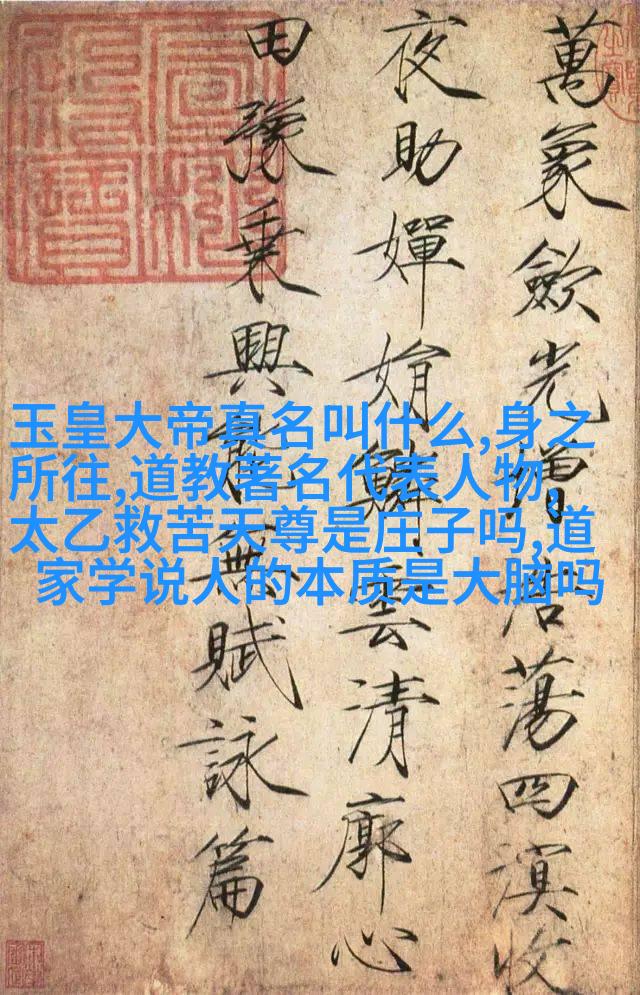 萬象歛光增浩蕩四溟收
夜助嬋娟鱗雲清廓心
田豫乘興能無賦詠篇
玉皇大帝真名叫什么,身之
所往,道教著名代表人物,
太乙救苦天尊是庄子吗,道
家学说人的本质是大脑吗